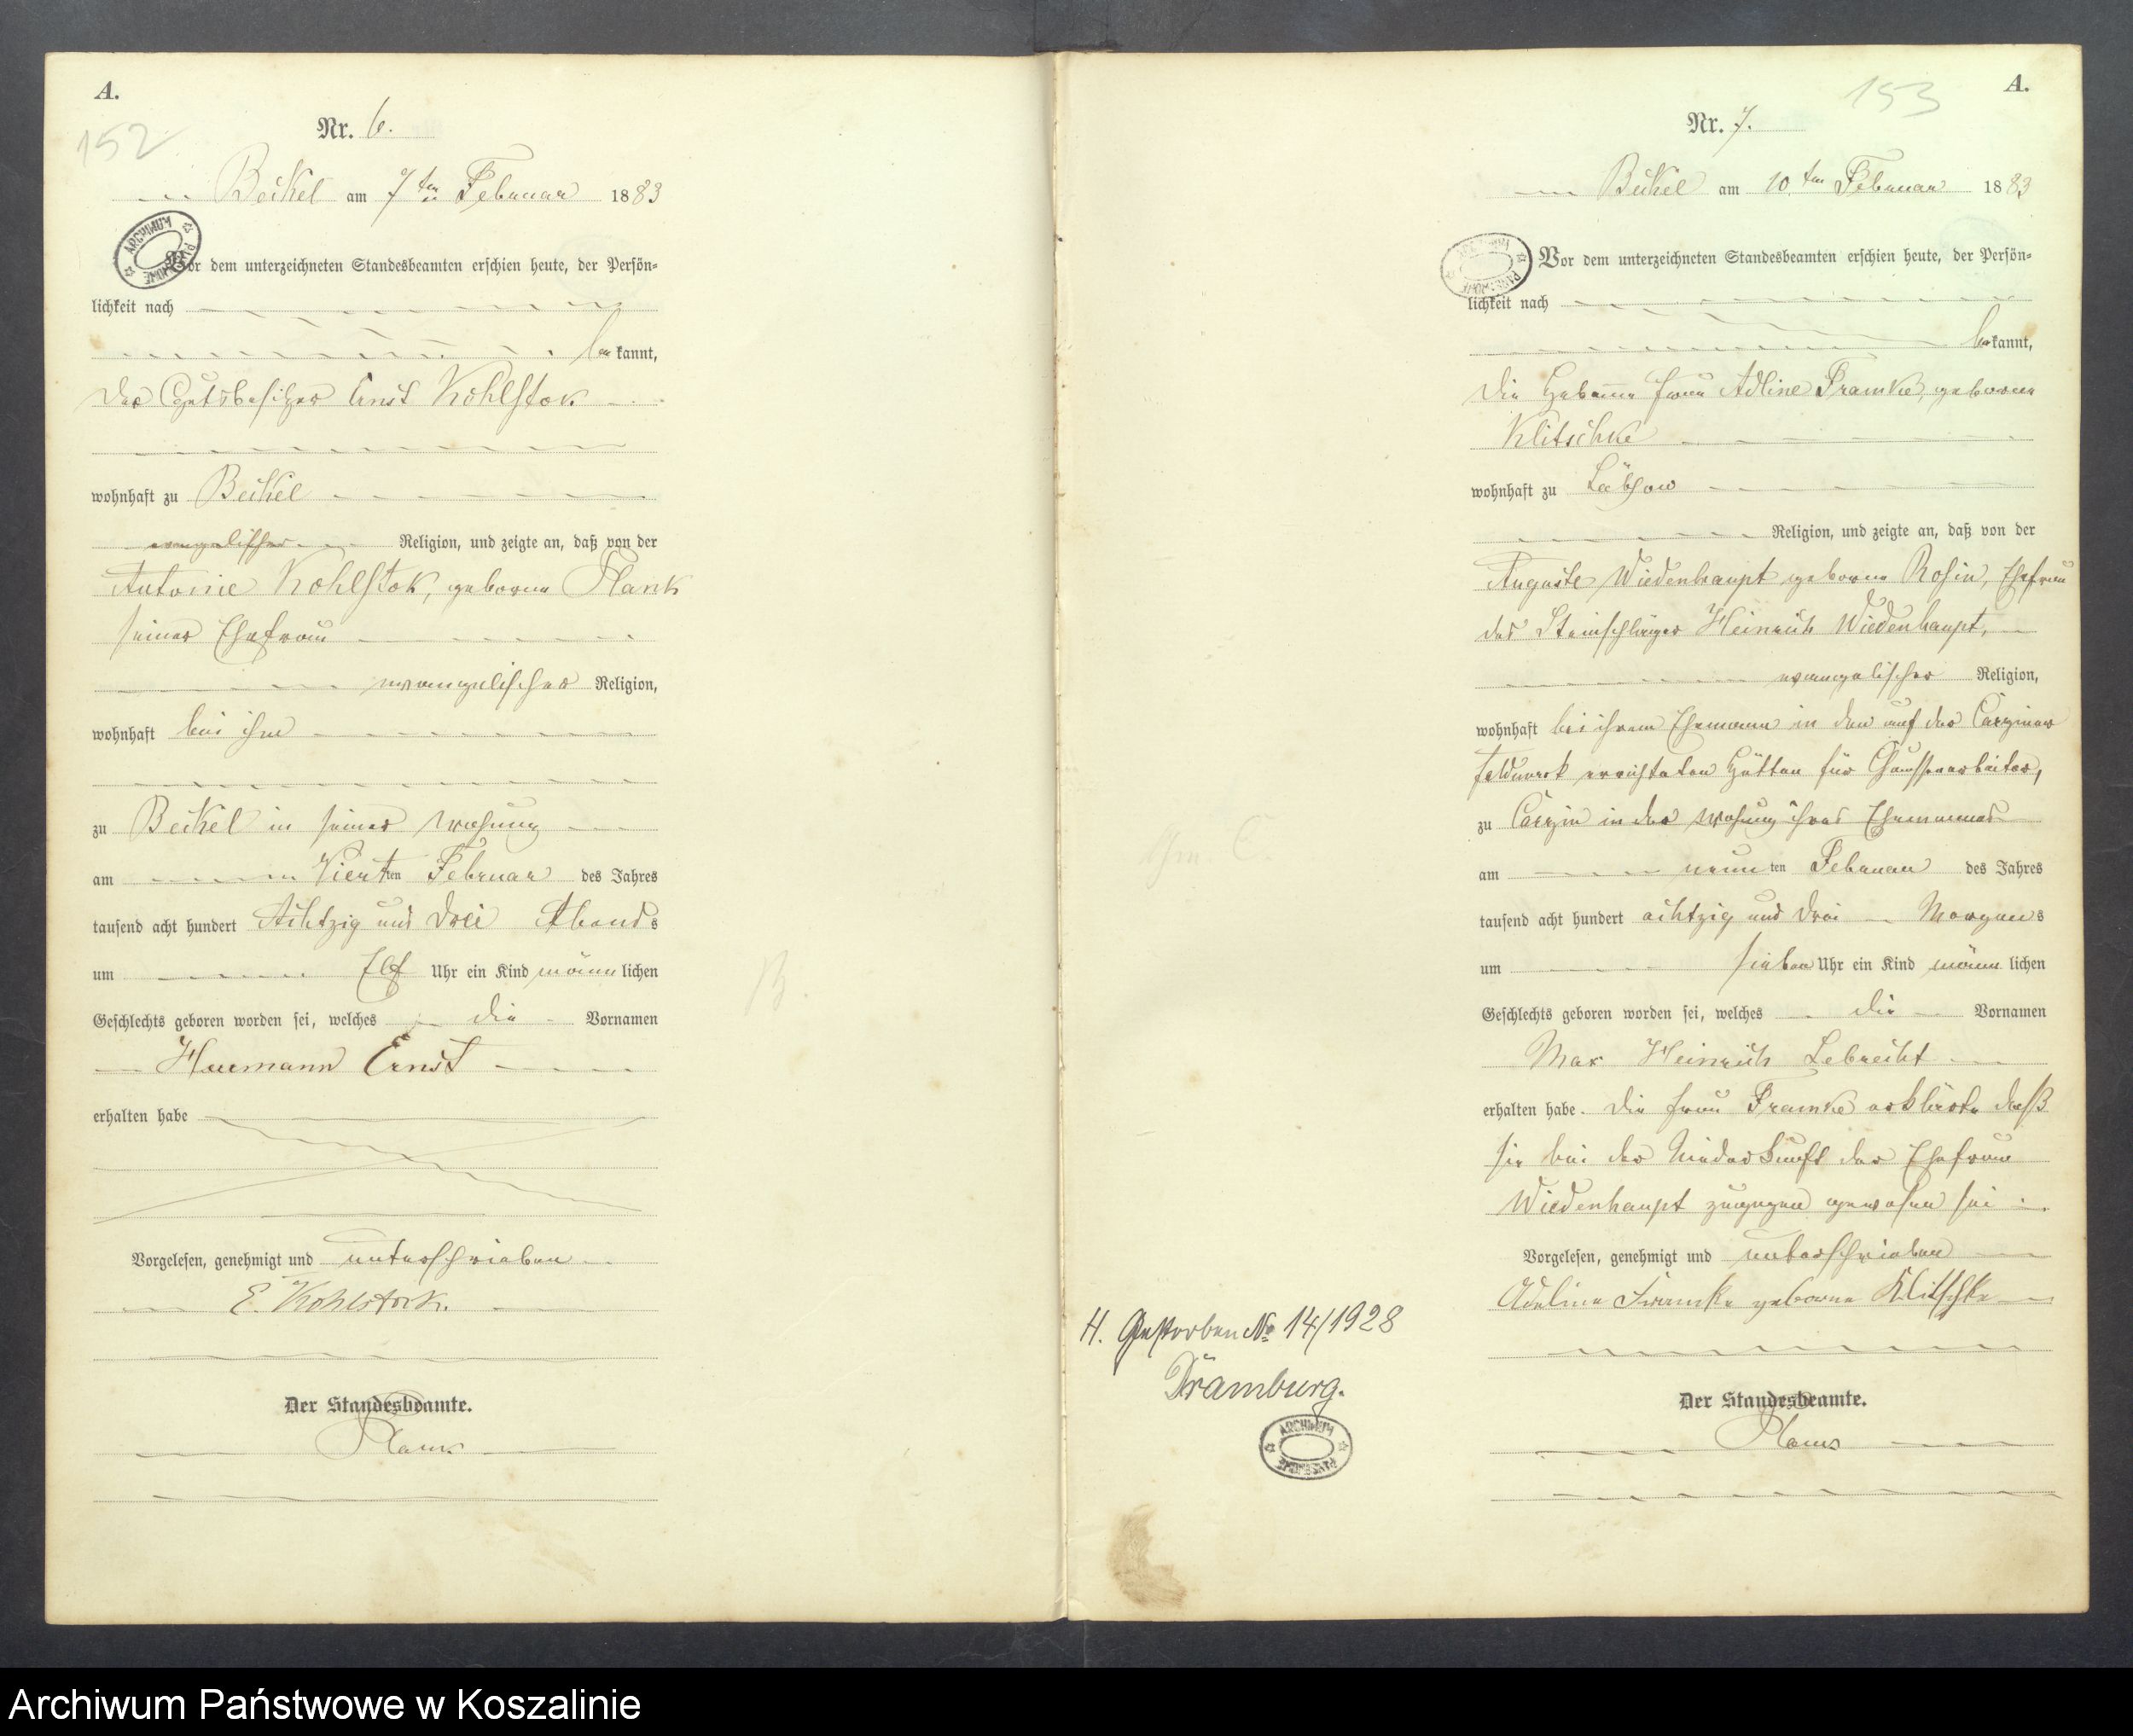 A.
152
Nr. 6.
Beikel am 7ten Februar 1883
Vor dem unterzeichneten Standesbeamten erschien heute, der Persön=
lichkeit nach
bekannt,
der Gutsbesitzer Ernst Kohlstok
wohnhaft zu Beikel
evangelischer Religion, und zeigte an, daß von der
Antonie Kohlstok, geborne Plank
seiner Ehefrau
evangelischer Religion,
wohnhaft bei ihm
zu Beikel in seiner Wohnung
am Vierten Februar des Jahres
tausend acht hundert Achtzig und drei Abends
um Elf Uhr ein Kind männlichen
Geschlechts geboren worden sei, welches die Vornamen
Hermann Ernst
erhalten habe
Vorgelesen, genehmigt und unterschrieben
E. Kohlstock.
Der Standesbeamte.
Plank
B.
A.
153
Nr. 7.
Beikel am 10.ten Februar 1883
Vor dem unterzeichneten Standesbeamten erschien heute, der Persön=
lichkeit nach
bekannt,
die Hebamme Frau Adline Framke, geborne
Klitschke
wohnhaft zu Lübsow
Religion, und zeigte an, daß von der
Auguste Wiedenhaupt geborne Rosin, Ehefrau
des Steinschläger Heinrich Wiedenhaupt,
evangelischer Religion,
wohnhaft bei ihrem Ehemann in den auf der Carziner
Feldmark errichteten Hütten für Chausseearbeiter,
zu Carzin in der Wohnung ihres Ehemannes
am neunten Februar des Jahres
tausend acht hundert achtzig und drei Morgens
um sieben Uhr ein Kind männlichen
Geschlechts geboren worden sei, welches die Vornamen
Max Heinrich Lebrecht
erhalten habe. Die Frau Framke erklärte daß
sie bei der Niederkunft der Ehefrau
Wiedenhaupt zugegen gewesen sei.
Vorgelesen, genehmigt und unterschrieben
Adeline Framke geborne Klitschke
Der Standesbeamte.
Plank
H. Gestorben No 14/1928
Dramburg.
ARCHIWUM PAŃSTWOWE
Archiwum Państwowe w Koszalinie